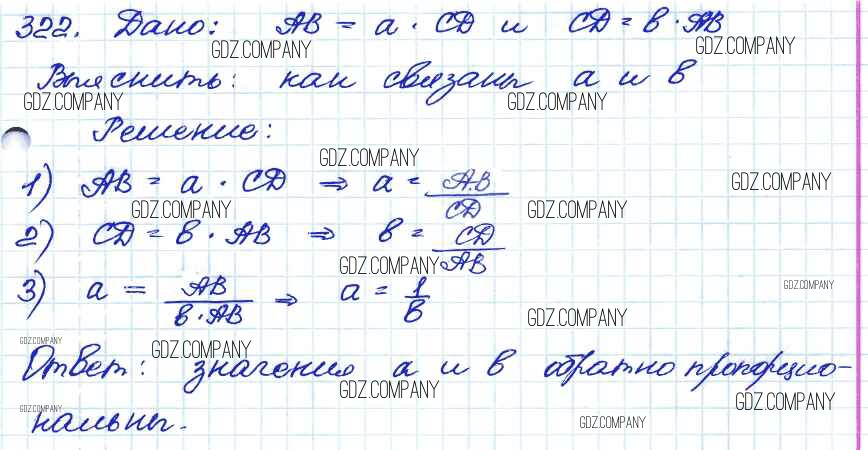 322. Дано: AB = a · CD и CD = b · AB
GDZ.COMPANY GDZ.COMPANY
Выяснить: как связаны a и b
GDZ.COMPANY GDZ.COMPANY
Решение:
GDZ.COMPANY
1) AB = a · CD ⇒ a = AB/CD
GDZ.COMPANY
GDZ.COMPANY GDZ.COMPANY
2) CD = b · AB ⇒ b = CD/AB
GDZ.COMPANY
3) a = AB/(b · AB) ⇒ a = 1/b
GDZ.COMPANY
GDZ.COMPANY
GDZ.COMPANY GDZ.COMPANY
Ответ: значения a и b обратно пропорцио-
GDZ.COMPANY GDZ.COMPANY
GDZ.COMPANY GDZ.COMPANY
нальны.